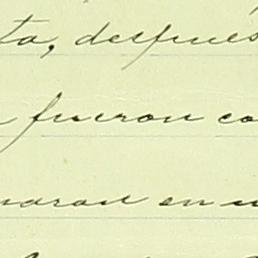 ta, después
fueron co
naron en u